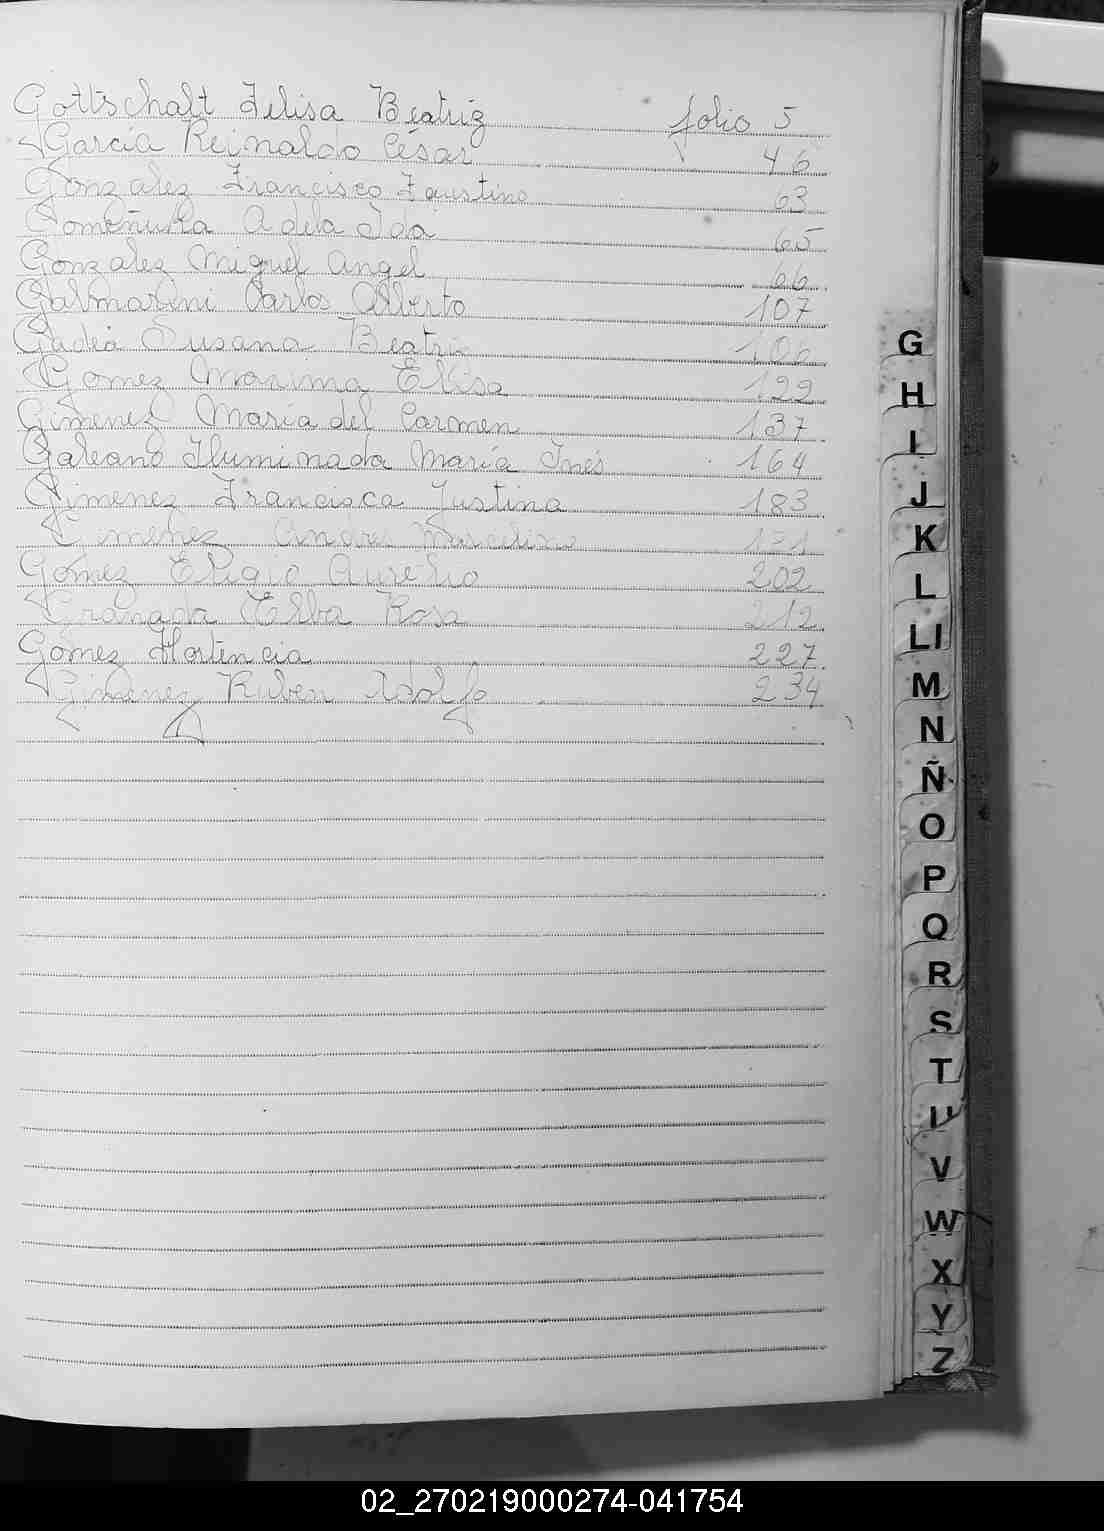 Gottschalt Felisa Beatriz folio 5
Garcia Reinaldo César 46
Gonzalez Francisco Faustino 63
Adela Ida 65
Gonzalez Miguel Angel 66
Galmarini Carlos Alberto 107
Susana Beatriz 106
Gomez Maxima Elisa 122
Gimenez María del Carmen 137
Galeano Iluminada María Inés 164
Gimenez Francisca Justina 183
Gimenez Andres Marcelino
Gómez Eligio Aurelio 202
Granada Elba Rosa 212
Gómez Hortencia 227
Gimenez Ruben Adolfo 234
G
H
I
J
K
L
Ll
M
N
Ñ
O
P
Q
R
S
T
U
V
W
X
Y
Z
02_270219000274-041754